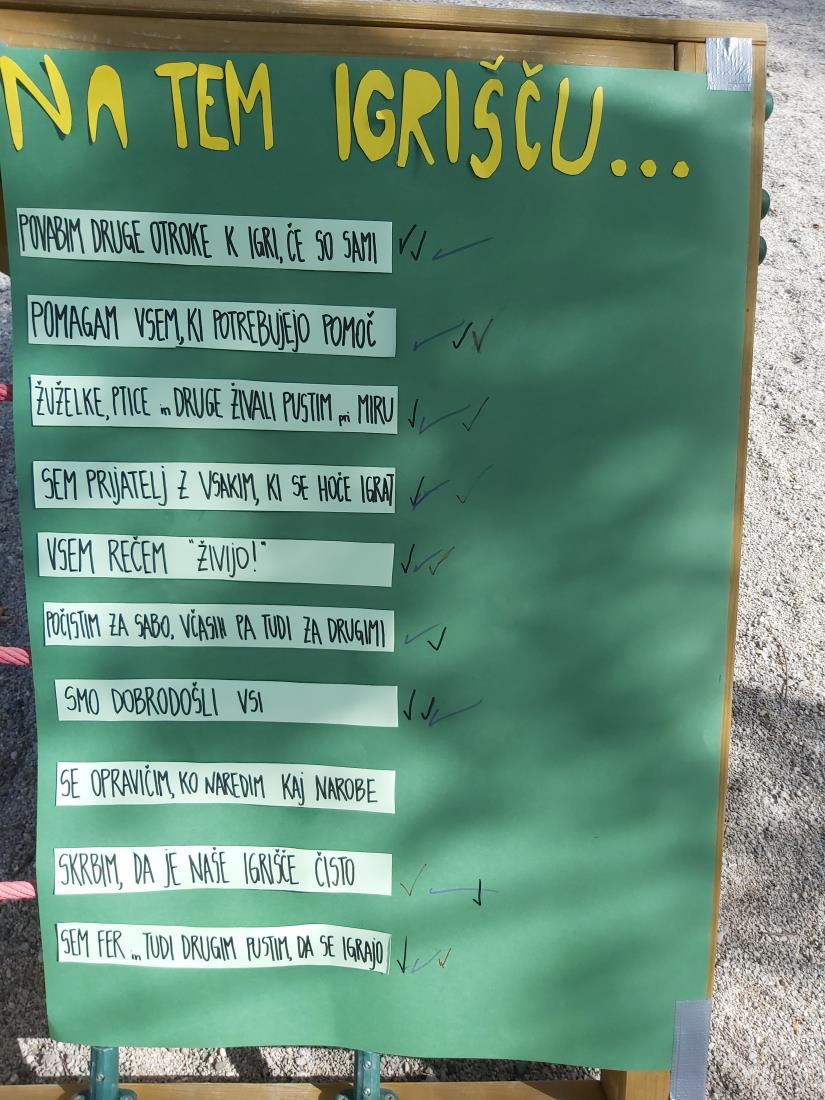 NA TEM IGRIŠČU...
POVABIM DRUGE OTROKE K IGRI, ČE SO SAMI
POMAGAM VSEM, KI POTREBUJEJO POMOČ
ŽUŽELKE, PTICE in DRUGE ŽIVALI PUSTIM pri MIRU
SEM PRIJATELJ Z VSAKIM, KI SE HOČE IGRAT
VSEM REČEM "ŽIVIJO!"
POČISTIM ZA SABO, VČASIH PA TUDI ZA DRUGIMI
SMO DOBRODOŠLI VSI
SE OPRAVIČIM, KO NAREDIM KAJ NAROBE
SKRBIM, DA JE NAŠE IGRIŠČE ČISTO
SEM FER in TUDI DRUGIM PUSTIM, DA SE IGRAJO